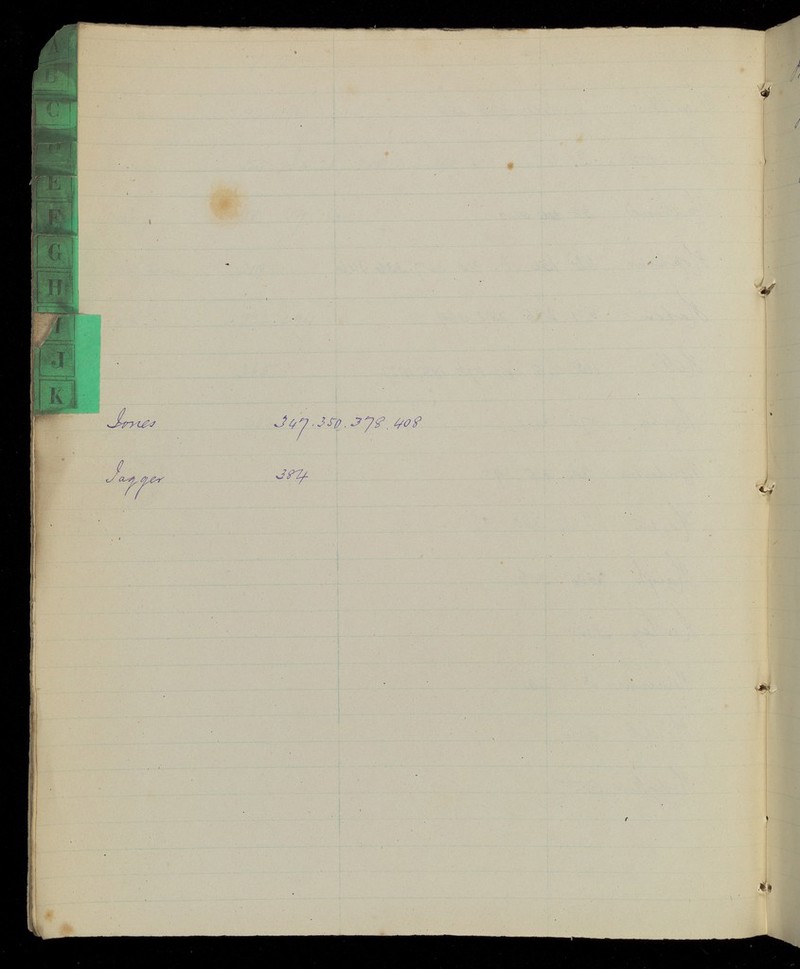 A
B
C
D
E
F
G
H
I
J
K
Jones 347. 350. 378. 408
Jagger 384